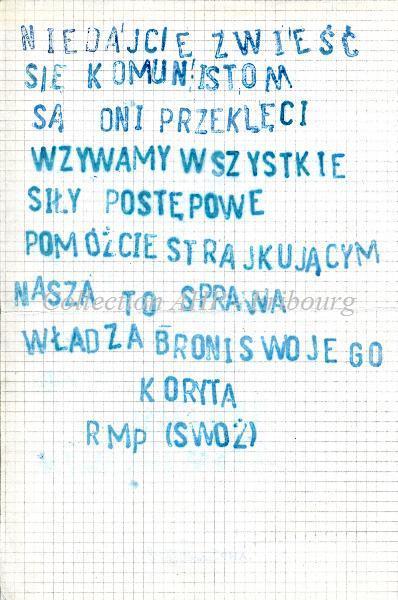 NIEDAJCIE ZWIEŚĆ
SIĘ KOMUNISTOM
SĄ ONI PRZEKLĘCI
WZYWAMY WSZYSTKIE
SIŁY POSTĘPOWE
POMÓŻCIE STRAJKUJĄCYM
NASZA TO SPRAWA
Collection AHPN Fribourg
WŁADZA BRONI SWOJEGO
KORYTA
RMP (SWOŻ)